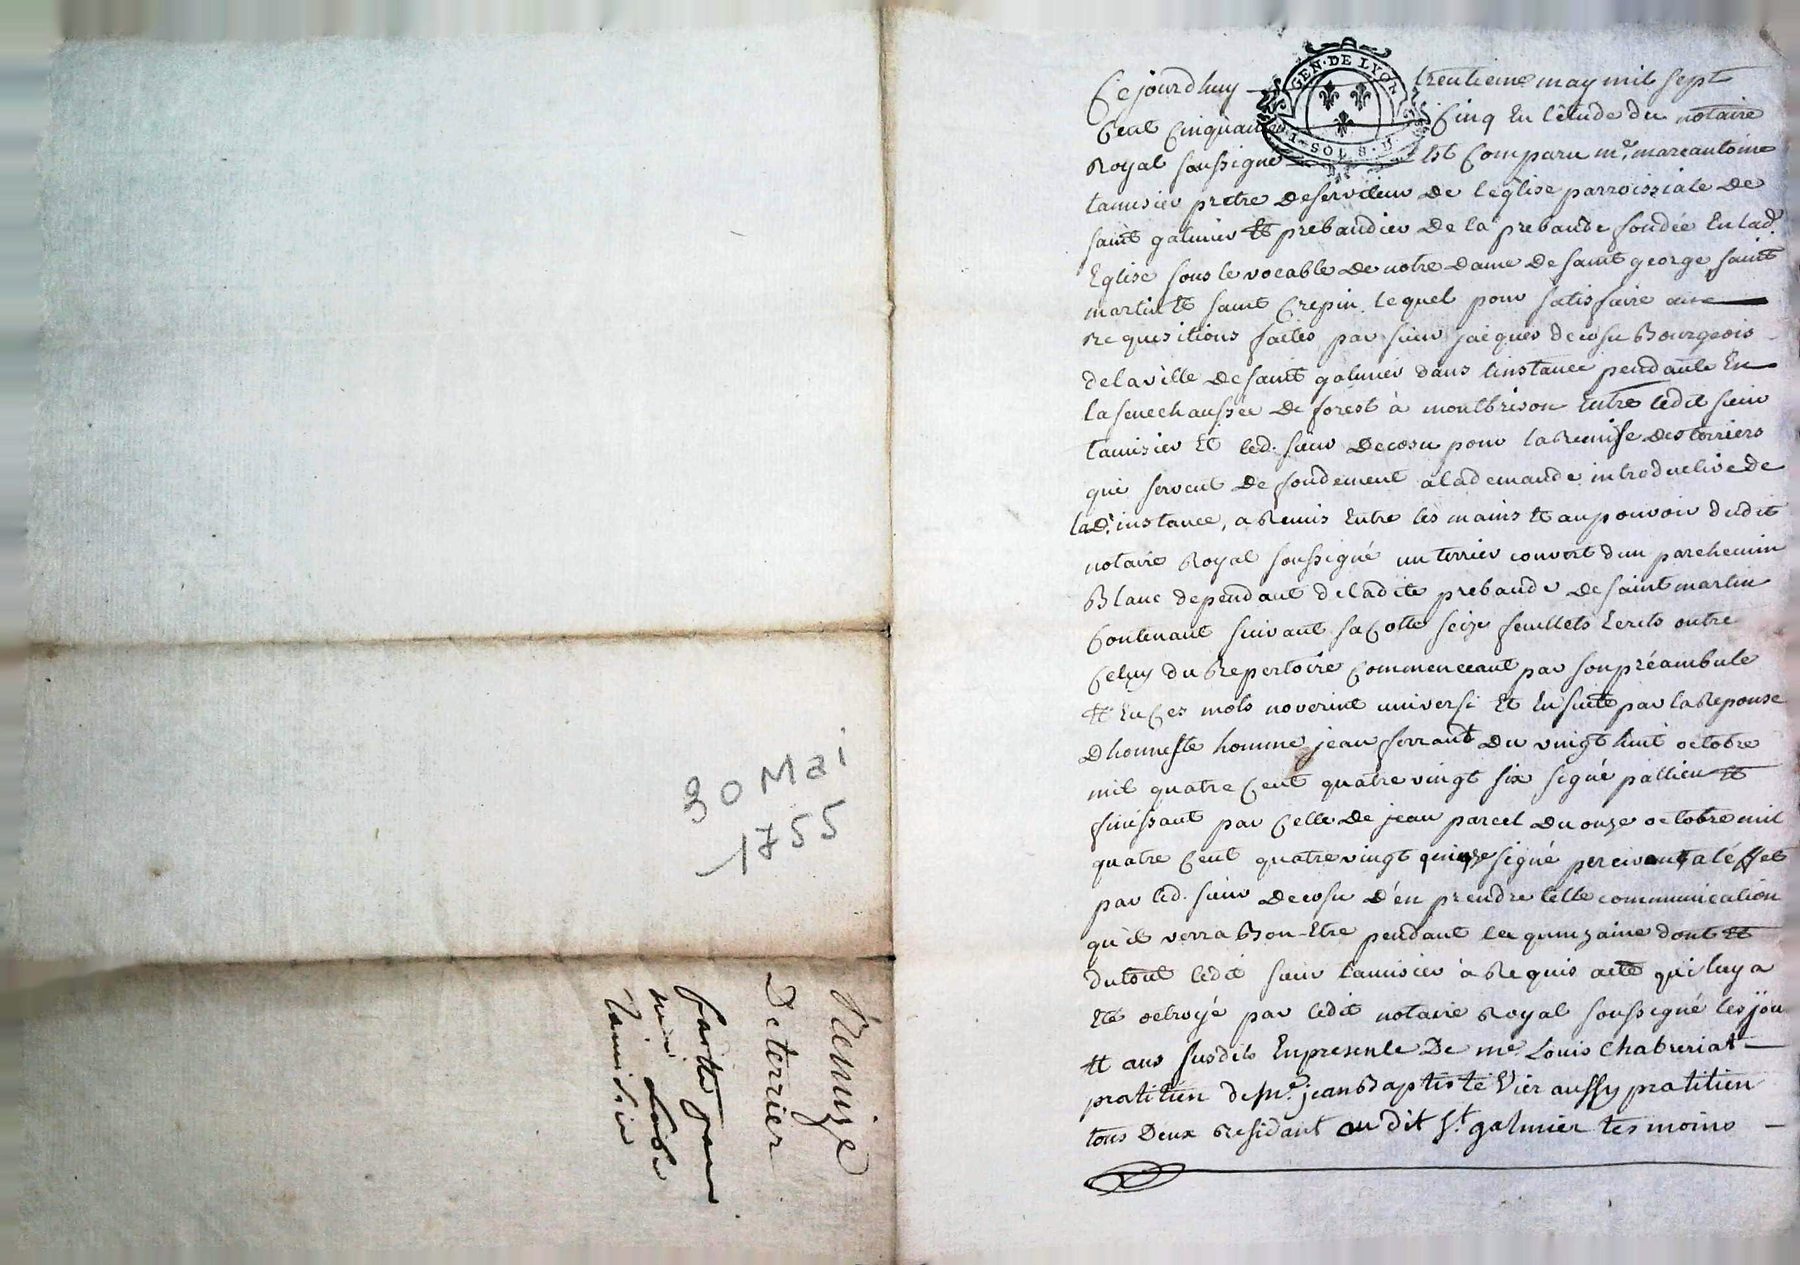 30 Mai
1755
Remize
De terrier
faitte par
mr L'abé
Tamisier
GEN. DE LYON
SOLS
Ce jourd huy trentieme may mil sept
Cent Cinquante Cinq En l'étude du notaire
Royal soussigné Est Comparu me. marcantoine
tamisier pretre Deserviteur De l'eglise parroissiale De
saint galmier Et prebandier De la prebande fondée En lad.
Eglise sous le vocable De notre Dame De saint george saint
martin Et saint Crepin, lequel pour satisfaire aux
Requisitions faites par sieur jacques decosu Bourgeois
de la ville De saint galmier dans linstance pendante En
la senechaussée De forest à montbrison Entre ledit sieur
tamisier Et led. sieur Decosu pour la Remise des terriers
qui servent De fondement a la demande introductive de
lad. instance, a Remis Entre les mains Et au pouvoir dudit
notaire Royal soussigné un terrier couvert dun parchemin
Blanc dependant de ladite prebande De saint martin
Contenant suivant sa Cotte seize feuillets Ecrits outre
Celuy du Repertoire Commenceant par son préambule
Et En Ces mots noverint universi Et En suite par la Reponse
D honneste homme jean ferrant Du vingt huit octobre
mil quatre Cent quatre vingt six signé pallieu Et
finissant par Celle De jean parcel Du onze octobre mil
quatre Cent quatre vingt quinze signé a léffet
par led. sieur Decosu D'en prendre telle communication
qu'il verra Bon-Etre pendant la quinzaine dont Et
du tout ledit sieur tamisier à Requis acte qui luy a
Eté octroyé par ledit notaire Royal soussigné les jou
Et ans susdits En presence De me. Louis Chabreriat
pratitien de me. jean Baptiste Vier aussy pratitien
tous Deux Residant au dit St. galmier tesmoins